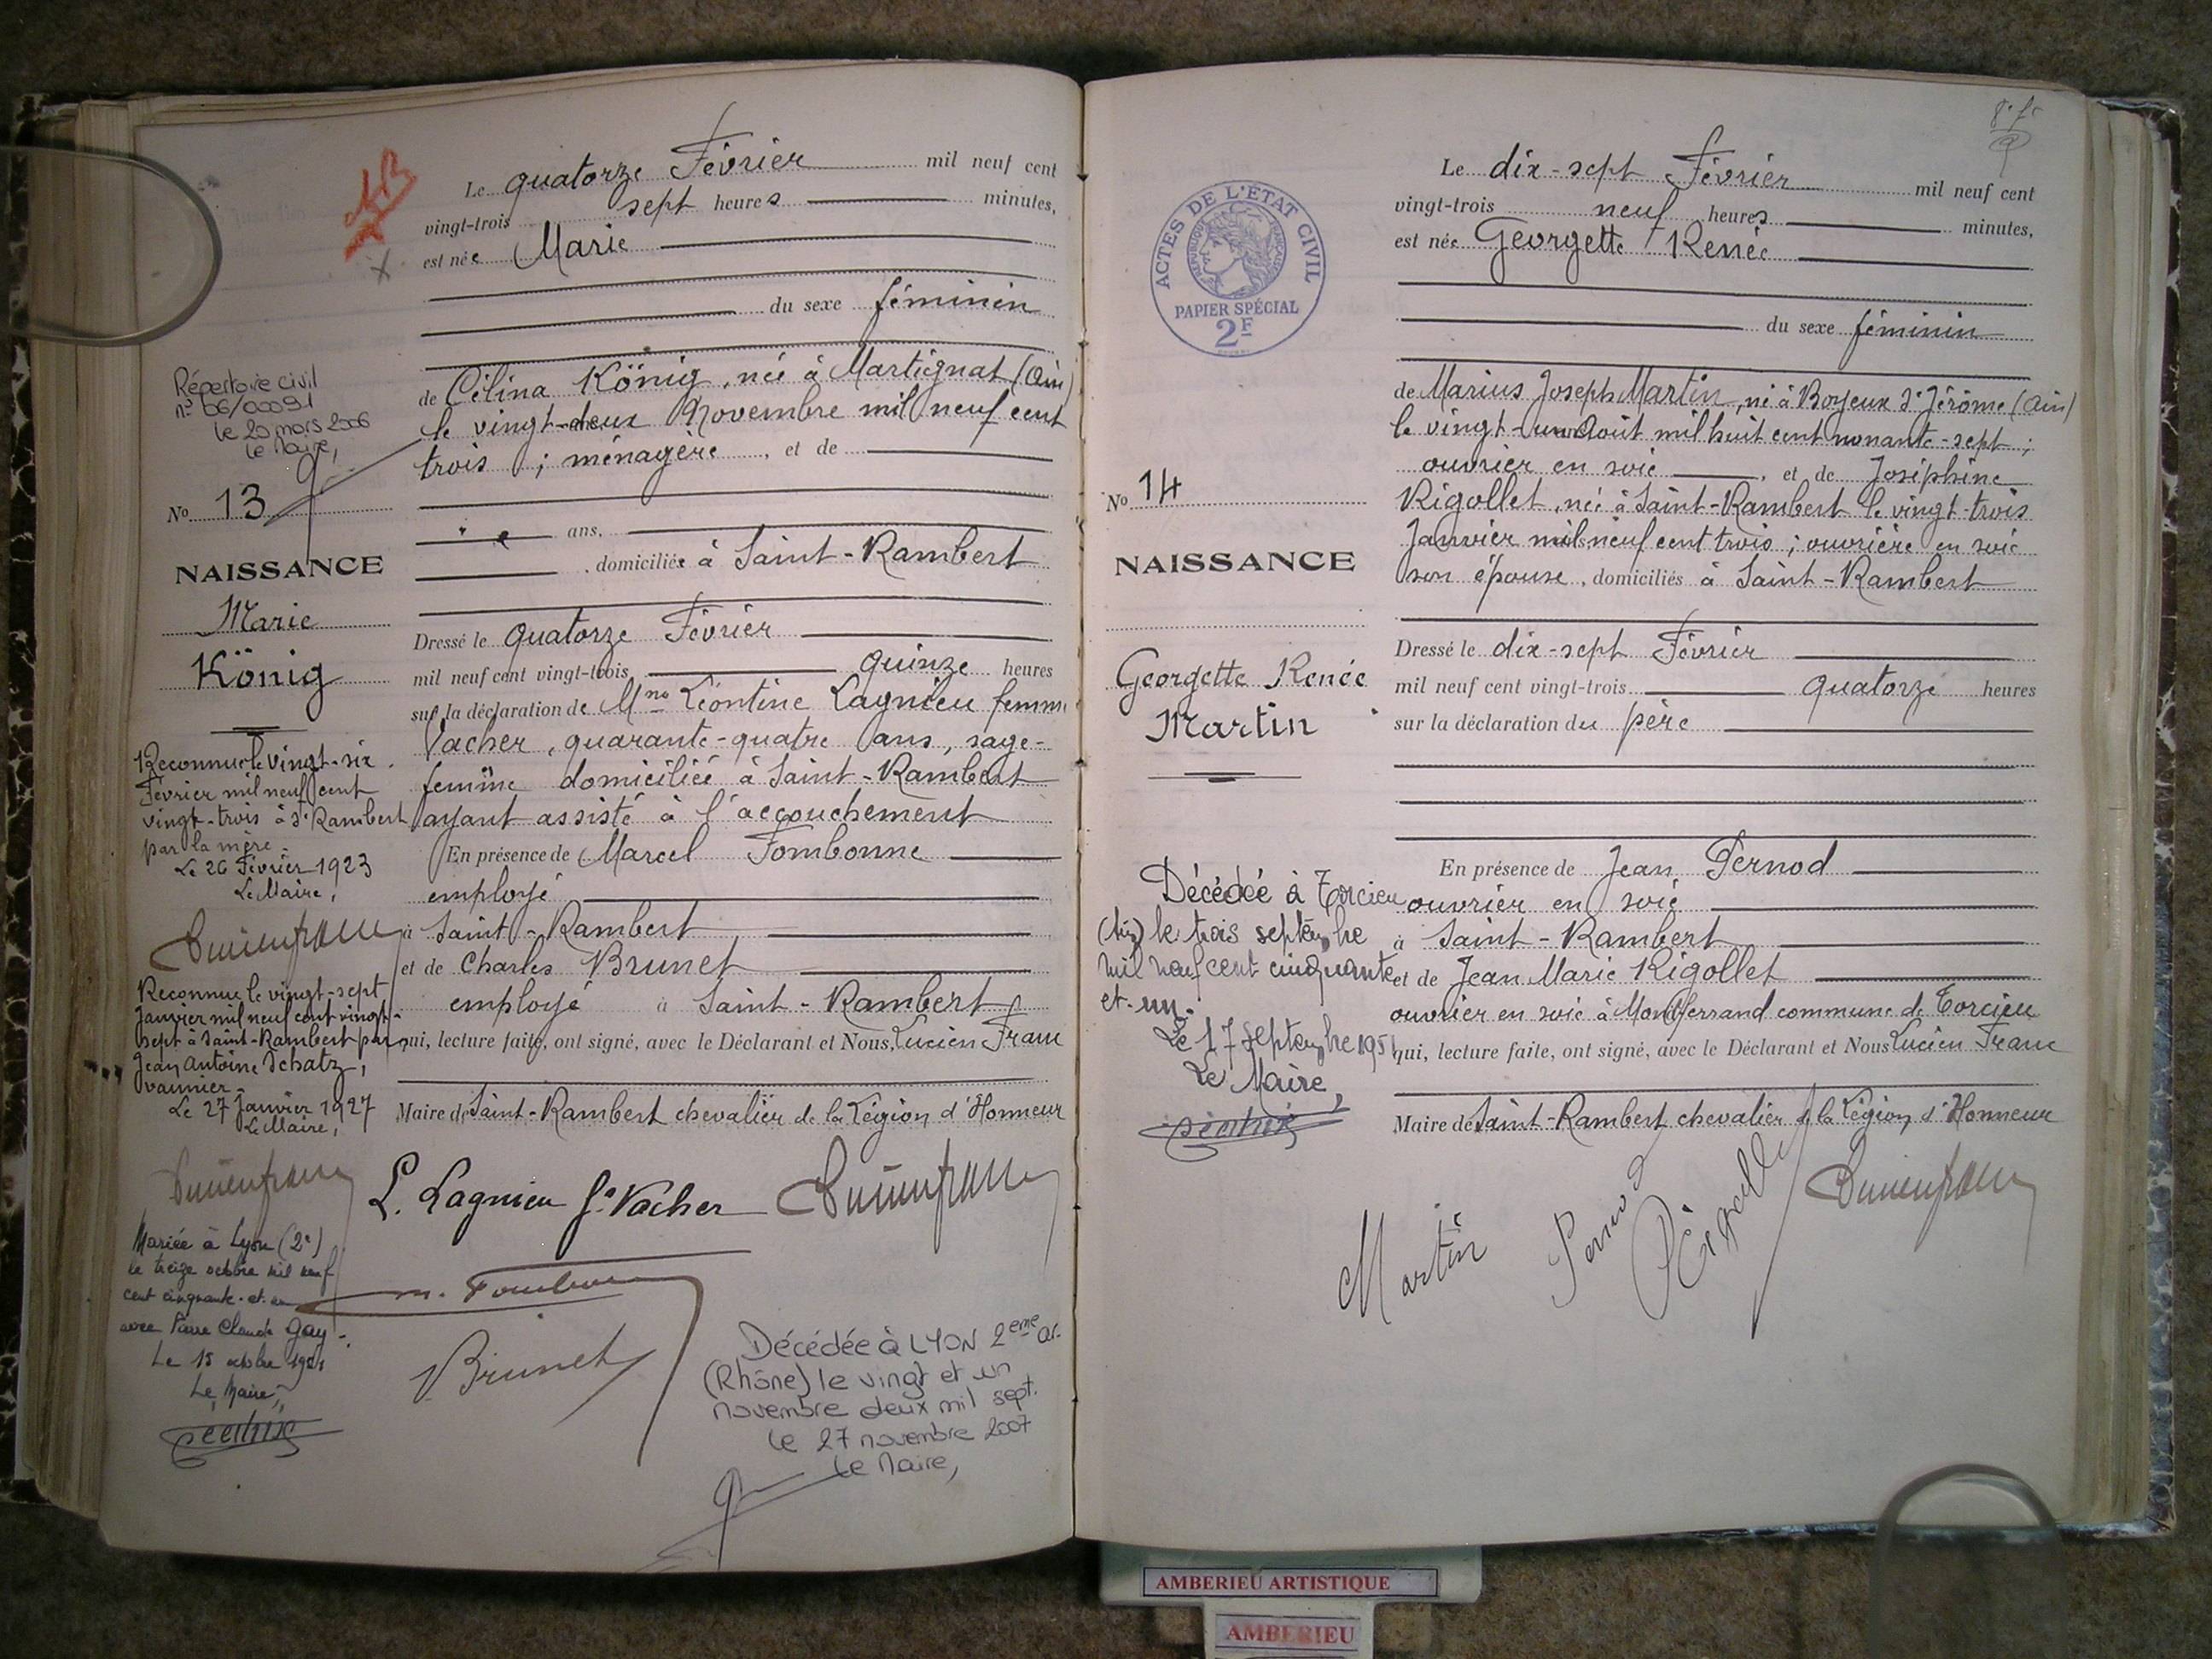 Le quatorze Février mil neuf cent
vingt-trois sept heures minutes,
est née Marie
du sexe féminin
de Célina König, née à Martignat (Ain)
le vingt-deux Novembre mil neuf cent
trois ; ménagère, et de
ans,
, domiciliée à Saint-Rambert
Dressé le quatorze Février
mil neuf cent vingt-trois quinze heures
sur la déclaration de Mme Léontine Lagnieu femme
Vacher, quarante-quatre ans, sage-
femme domiciliée à Saint-Rambert
ayant assisté à l'accouchement
En présence de Marcel Fombonne
employé
à Saint-Rambert
et de Charles Brunet
employé à Saint-Rambert
qui, lecture faite, ont signé, avec le Déclarant et Nous, Lucien Franc
Maire de Saint-Rambert chevalier de la Légion d'Honneur
L. Lagnieu fe Vacher
m. Fombonne
Brunet
Décédée à LYON 2eme ar.
(Rhône) le vingt et un
novembre deux mil sept.
le 27 novembre 2007
le Maire,
Répertoire civil
n° 06/00091
le 20 mars 2006
le Maire,
No 13
NAISSANCE
Marie
König
Reconnue le vingt-six
Février mil neuf cent
vingt-trois à St Rambert
par la mère.
Le 26 Février 1923
Le Maire,
Lucien franc
Reconnue le vingt-sept
Janvier mil neuf cent vingt-
sept à Saint-Rambert par
Jean Antoine Schatz,
vannier.
Le 27 Janvier 1927
Le Maire,
Lucien franc
Mariée à Lyon (2e)
le treize octobre mil neuf
cent cinquante-et-un
avec Pierre Claude Gay.
Le 15 octobre 1951
Le Maire,
Le dix-sept Février mil neuf cent
vingt-trois neuf heures minutes,
est née Georgette Renée
du sexe féminin
de Marius Joseph Martin, né à Boyeux St Jérôme (Ain)
le vingt-un Août mil huit cent nonante-sept ;
ouvrier en soie, et de Joséphine
Rigollet, née à Saint-Rambert le vingt-trois
Janvier mil neuf cent trois ; ouvrière en soie
son épouse, domiciliés à Saint-Rambert
Dressé le dix-sept Février
mil neuf cent vingt-trois quatorze heures
sur la déclaration du père
En présence de Jean Pernod
ouvrier en soie
à Saint-Rambert
et de Jean Marie Rigollet
ouvrier en soie à Montferrand commune de Torcieu
qui, lecture faite, ont signé, avec le Déclarant et Nous Lucien Franc
Maire de Saint-Rambert chevalier de la Légion d'Honneur
Martin Pernod Rigollet Lucien franc
ACTES DE L'ETAT CIVIL
REPUBLIQUE FRANCAISE
PAPIER SPÉCIAL
2F
No 14
NAISSANCE
Georgette Renée
Martin
Décédée à Torcieu
(Ain) le trois septembre
mil neuf cent cinquante
et-un.
Le 17 septembre 1951
Le Maire,
AMBERIEU ARTISTIQUE
AMBERIEU